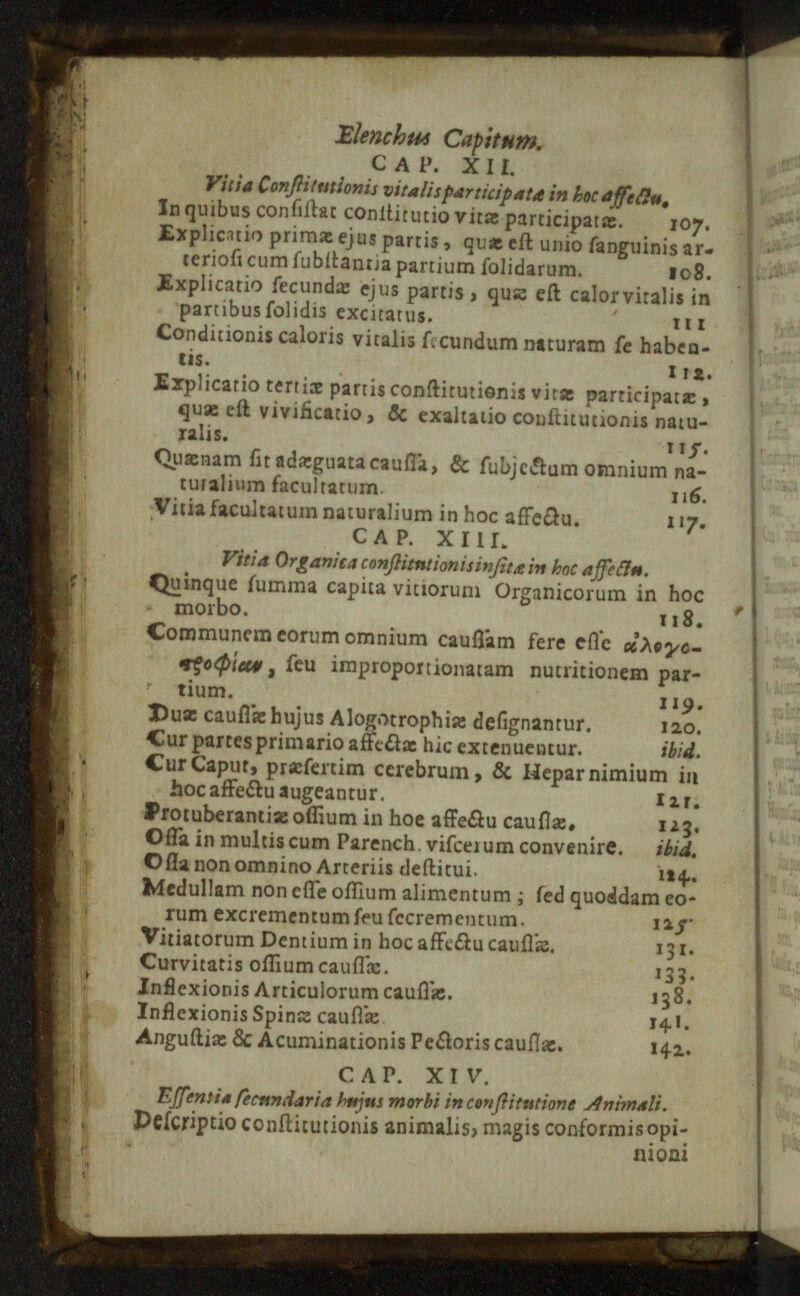 Elenchus Capitum.
CAP. XII.
Vitia Conſtitutionis vitalis participatæ in hoc affectu.
In quibus conſiſtat conſtitutio vitæ participatæ. 107.
Explicatio primæ ejus partis, quæ eſt unio ſanguinis ar-
terioſi cum ſubſtantia partium ſolidarum. 108.
Explicatio ſecundæ ejus partis, quæ eſt calor vitalis in
partibus ſolidis excitatus. 111
Conditionis caloris vitalis ſecundum naturam ſe haben-
tis. 112.
Explicatio tertiæ partis conſtitutionis vitæ participatæ,
quæ eſt vivificatio, & exaltatio conſtitutionis natu-
ralis. 115.
Quænam ſit adæguata cauſſa, & ſubjectum omnium na-
turalium facultatum. 116.
Vitia facultatum naturalium in hoc affectu. 117.
CAP. XIII.
Vitia Organica conſtitutionis inſitæ in hoc affectu.
Quinque ſumma capita vitiorum Organicorum in hoc
morbo. 118.
Communem eorum omnium cauſſam fere eſſe ἀλογο-
τροφίαν, ſeu improportionatam nutritionem par-
tium. 119.
Duæ cauſſæ hujus Alogotrophiæ deſignantur. 120.
Cur partes primario affectæ hic extenuentur. ibid.
Cur Caput, præſertim cerebrum, & Hepar nimium in
hoc affectu augeantur. 121.
Protuberantiæ oſſium in hoc affectu cauſſæ. 123.
Oſſa in multis cum Parench. viſcerum convenire. ibid.
Oſſa non omnino Arteriis deſtitui. 124.
Medullam non eſſe oſſium alimentum; ſed quoddam eo-
rum excrementum ſeu ſecrementum. 125.
Vitiatorum Dentium in hoc affectu cauſſæ. 131.
Curvitatis oſſium cauſſæ. 133.
Inflexionis Articulorum cauſſæ. 138.
Inflexionis Spinæ cauſſæ 141.
Anguſtiæ & Acuminationis Pectoris cauſſæ. 142.
CAP. XIV.
Eſſentia ſecundaria hujus morbi in conſtitutione Animali.
Deſcriptio conſtitutionis animalis, magis conformis opi-
nioni